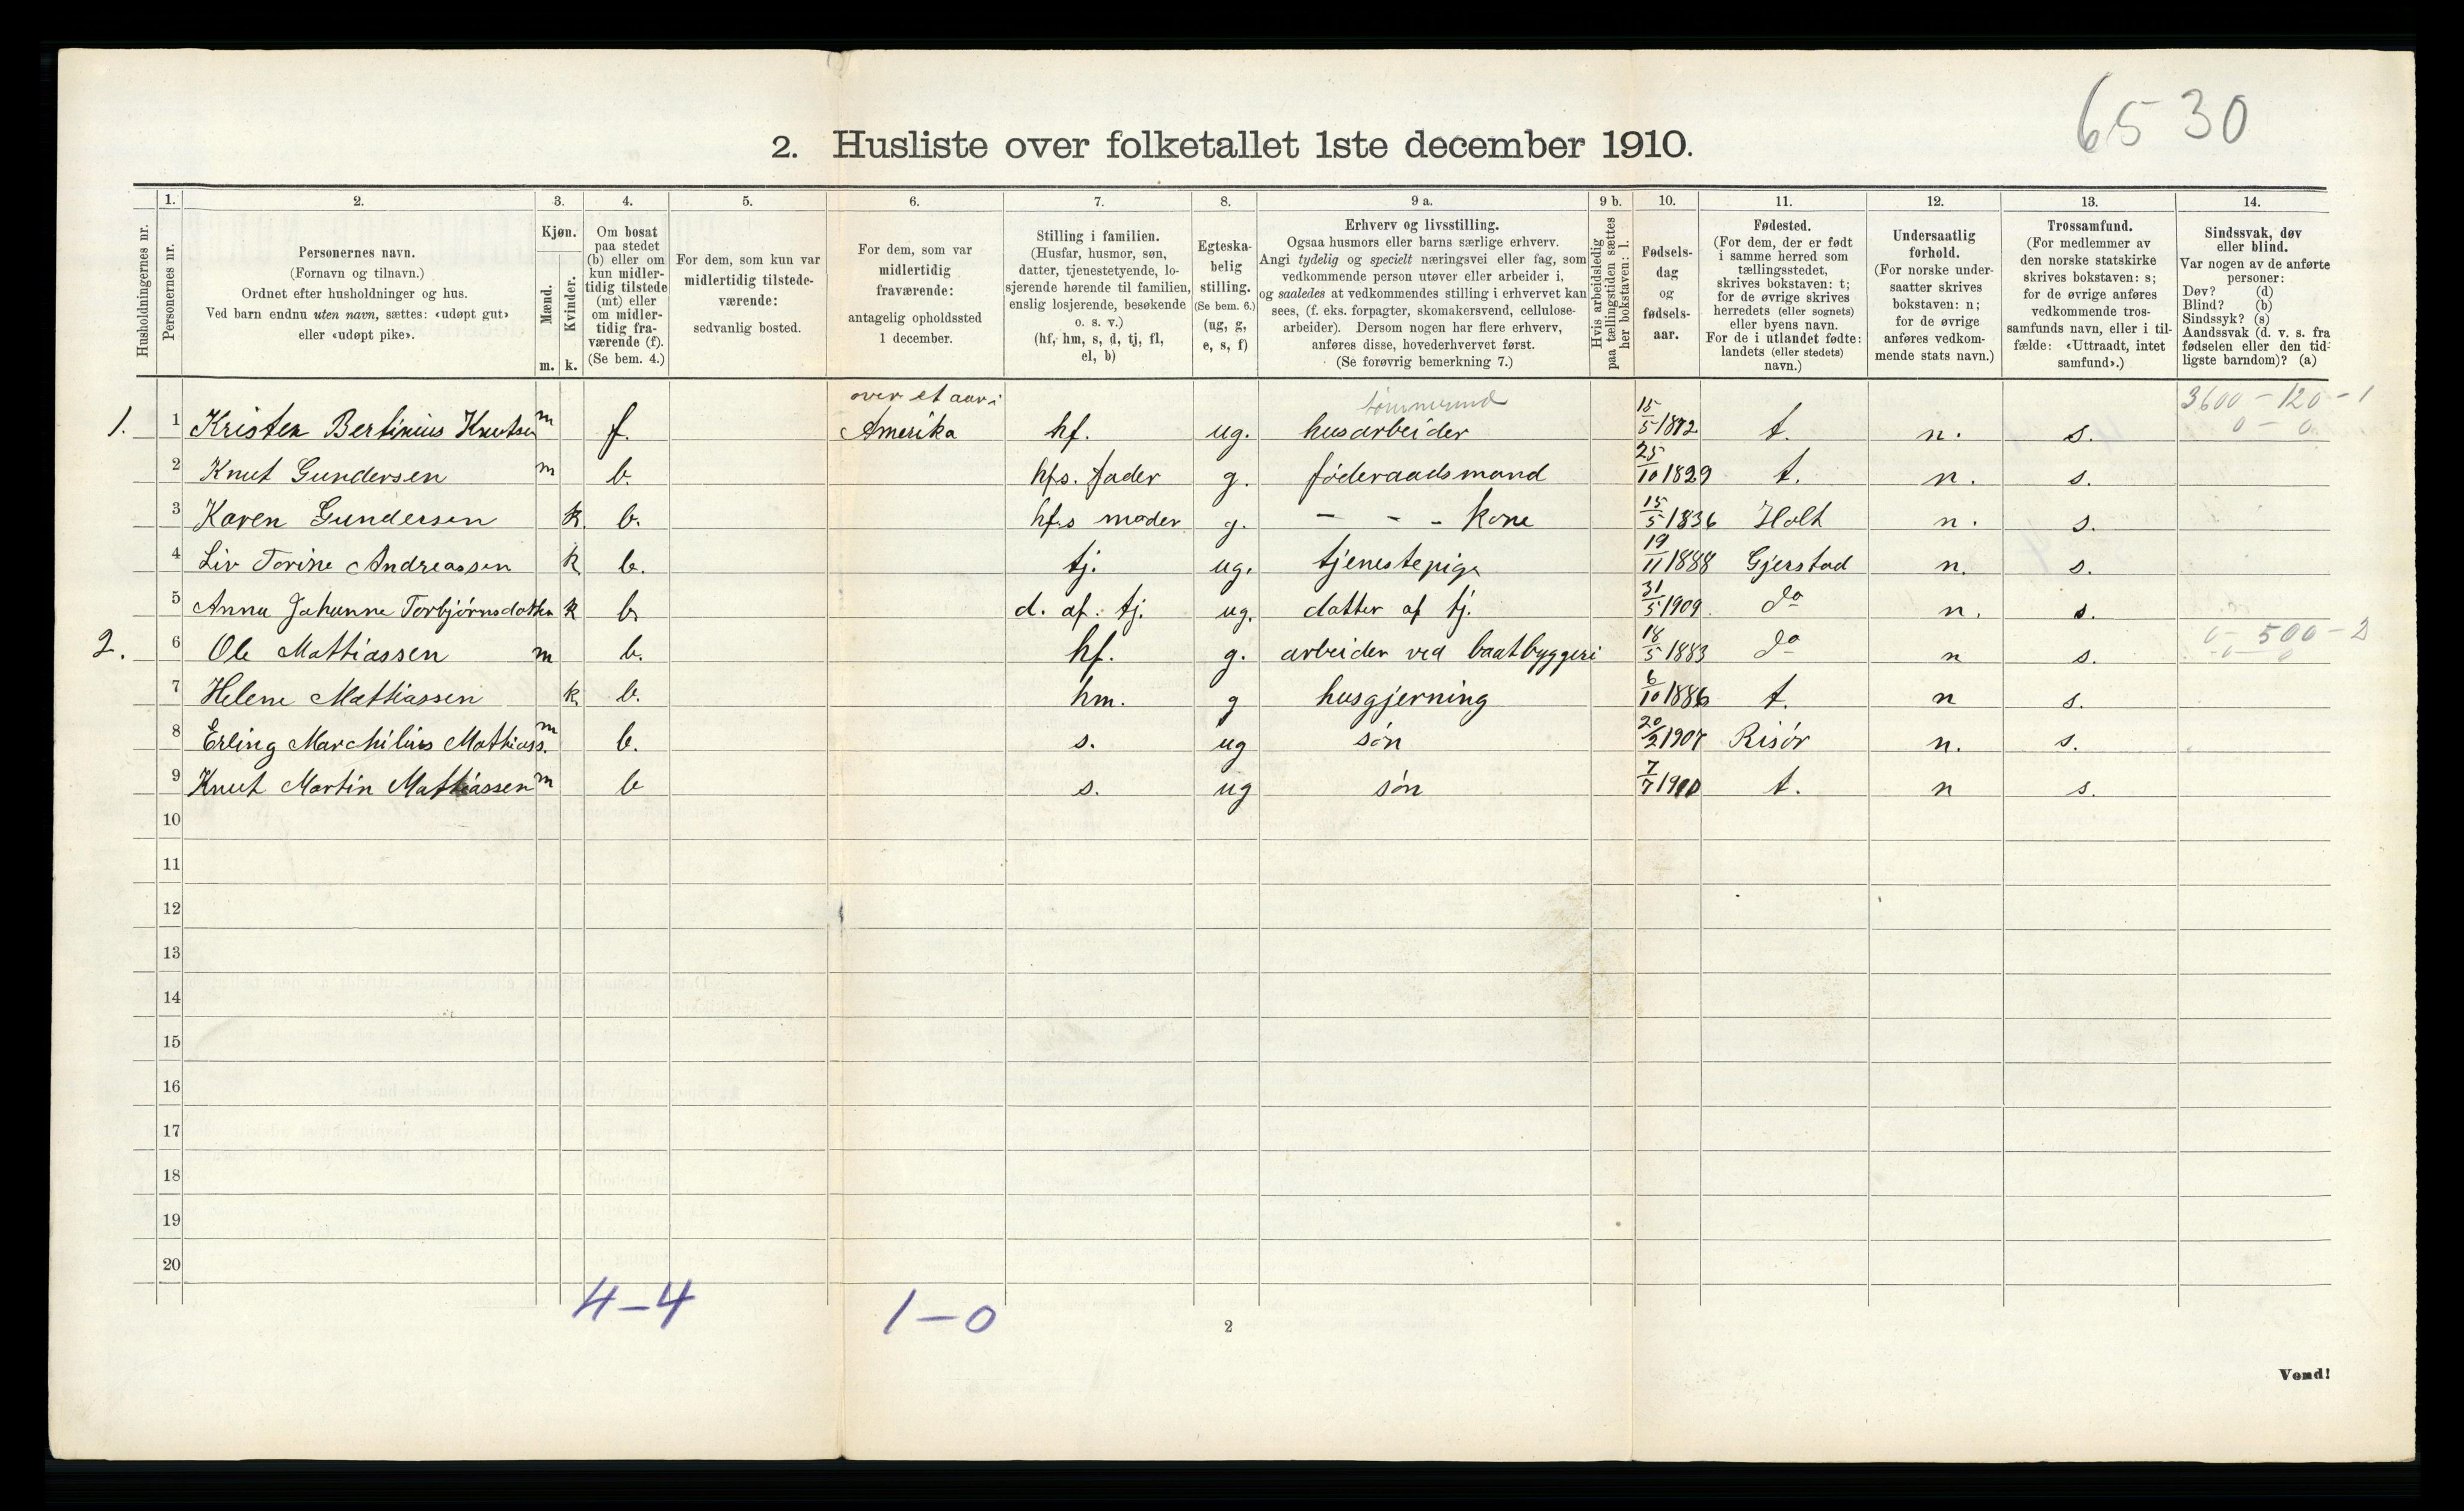 65 30
2. Husliste over folketallet 1ste december 1910.
1. 2. 3. 4. 5. 6. 7. 8. 9 a. 9 b. 10. 11. 12. 13. 14.
Husholdningernes nr.
Personernes nr.
Personernes navn.
(Fornavn og tilnavn.)
Ordnet efter husholdninger og hus.
Ved barn endnu uten navn, sættes: «udøpt gut»
eller «udøpt pike».
Kjøn.
Mænd.
Kvinder.
m. k.
Om bosat
paa stedet
(b) eller om
kun midler-
tidig tilstede
(mt) eller
om midler-
tidig fra-
værende (f).
(Se bem. 4.)
For dem, som kun var
midlertidig tilstede-
værende:
sedvanlig bosted.
For dem, som var
midlertidig
fraværende:
antagelig opholdssted
1 december.
Stilling i familien.
(Husfar, husmor, søn,
datter, tjenestetyende, lo-
sjerende hørende til familien,
enslig losjerende, besøkende
o. s. v.)
(hf, hm, s, d, tj, fl,
el, b)
Egteska-
belig
stilling.
(Se bem. 6.)
(ug, g,
e, s, f)
Erhverv og livsstilling.
Ogsaa husmors eller barns særlige erhverv.
Angi tydelig og specielt næringsvei eller fag, som
vedkommende person utøver eller arbeider i,
og saaledes at vedkommendes stilling i erhvervet kan
sees, (f. eks. forpagter, skomakersvend, cellulose-
arbeider). Dersom nogen har flere erhverv,
anføres disse, hovederhvervet først.
(Se forøvrig bemerkning 7.)
Hvis arbeidsledig
paa tællingstiden sættes
her bokstaven: l.
Fødsels-
dag
og
fødsels-
aar.
Fødested.
(For dem, der er født
i samme herred som
tællingsstedet,
skrives bokstaven: t;
for de øvrige skrives
herredets (eller sognets)
eller byens navn.
For de i utlandet fødte:
landets (eller stedets)
navn.)
Undersaatlig
forhold.
(For norske under-
saatter skrives
bokstaven: n;
for de øvrige
anføres vedkom-
mende stats navn.)
Trossamfund.
(For medlemmer av
den norske statskirke
skrives bokstaven: s;
for de øvrige anføres
vedkommende tros-
samfunds navn, eller i til-
fælde: «Uttraadt, intet
samfund».)
Sindssvak, døv
eller blind.
Var nogen av de anførte
personer:
Døv? (d)
Blind? (b)
Sindssyk? (s)
Aandssvak (d. v. s. fra
fødselen eller den tid-
ligste barndom)? (a)
over et aar i 3600 - 120 - 1
1. 1 Kristen Bertinius Knutsen m f. Amerika hf. ug. husarbeider 15/5 1872 t. n. s. 0 - 0
2 Knut Gundersen m b. hfs. fader g. føderaadsmand 25/10 1829 t. n. s.
3 Karen Gundersen k. b. hfs moder g. - - - kone 15/5 1836 Holt n. s.
4 Liv Torine Andreassen k b. tj. ug. tjenestepige 19/11 1888 Gjerstad n. s.
5 Anna Johanne Torbjørnsdatter k b. d. af. tj. ug. datter af tj. 31/5 1909. do n. s.
2. 6 Ole Mathiassen m b. hf. g. arbeider ved baatbyggeri 18/5 1883 do n s. 0 - 500 - 2
7 Helene Mathiassen k b. hm. g husgjerning 6/10 1886 t. n s.
8 Erling Marchilius Mathiass. m b. s. ug søn 20/2 1907 Risør n. s.
9 Knut Martin Mathiassen m b s. ug søn 7/7 1910 t. n s.
10
11
12
13
14
15
16
17
18
19
20
4-4 1-0
2
Vend!